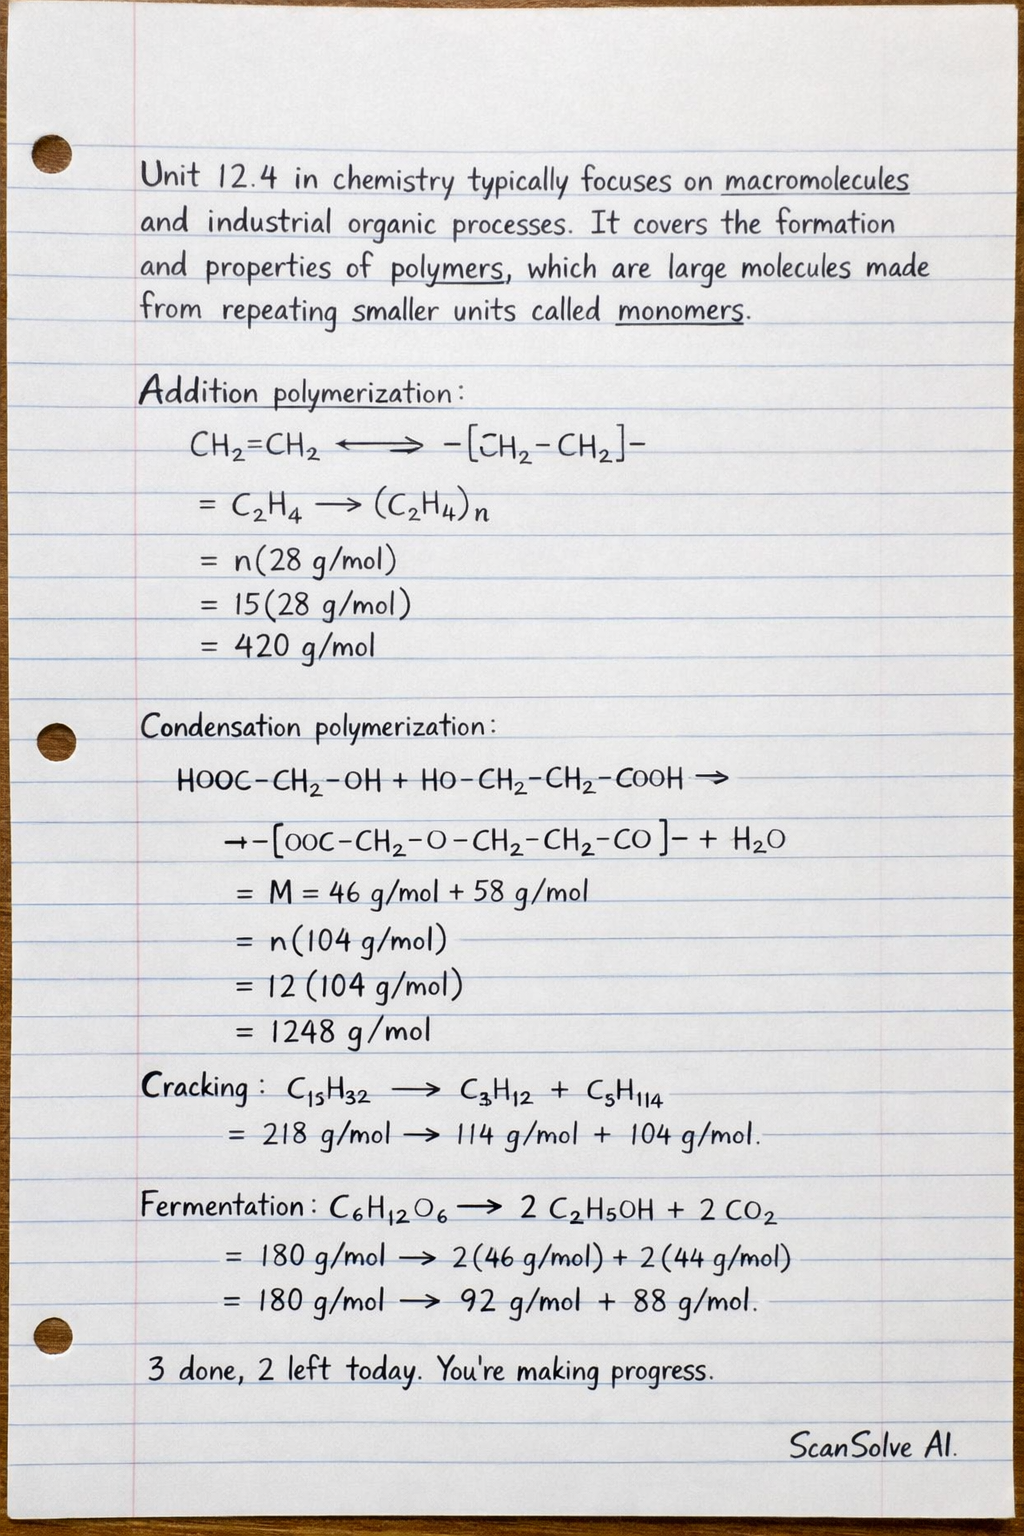 Unit 12.4 in chemistry typically focuses on macromolecules
and industrial organic processes. It covers the formation
and properties of polymers, which are large molecules made
from repeating smaller units called monomers.
Addition polymerization:
CH₂=CH₂ ⟷ -[CH₂-CH₂]-
= C₂H₄ → (C₂H₄)n
= n(28 g/mol)
= 15(28 g/mol)
= 420 g/mol
Condensation polymerization:
HOOC-CH₂-OH + HO-CH₂-CH₂-COOH →
→-[OOC-CH₂-O-CH₂-CH₂-CO]- + H₂O
= M = 46 g/mol + 58 g/mol
= n(104 g/mol)
= 12 (104 g/mol)
= 1248 g/mol
Cracking: C₁₅H₃₂ → C₃H₁₂ + C₅H₁₁₄
= 218 g/mol → 114 g/mol + 104 g/mol.
Fermentation: C₆H₁₂O₆ → 2 C₂H₅OH + 2 CO₂
= 180 g/mol → 2(46 g/mol) + 2(44 g/mol)
= 180 g/mol → 92 g/mol + 88 g/mol.
3 done, 2 left today. You're making progress.
ScanSolve AI.